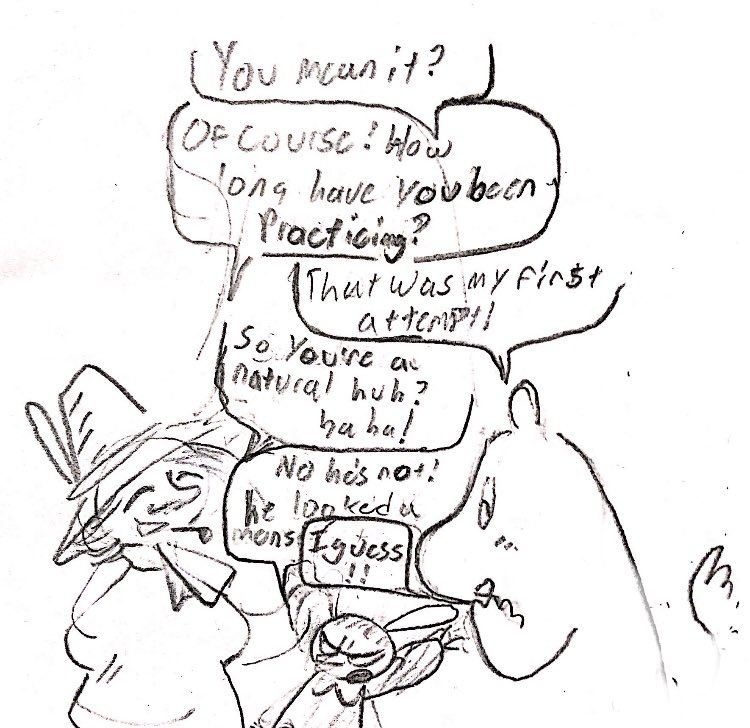 You mean it?
Of course! How
long have you been
Practicing?
That was my first
attempt!
So you're a
natural huh?
ha ha!
No he's not!
he looked a
mons
I guess
!!